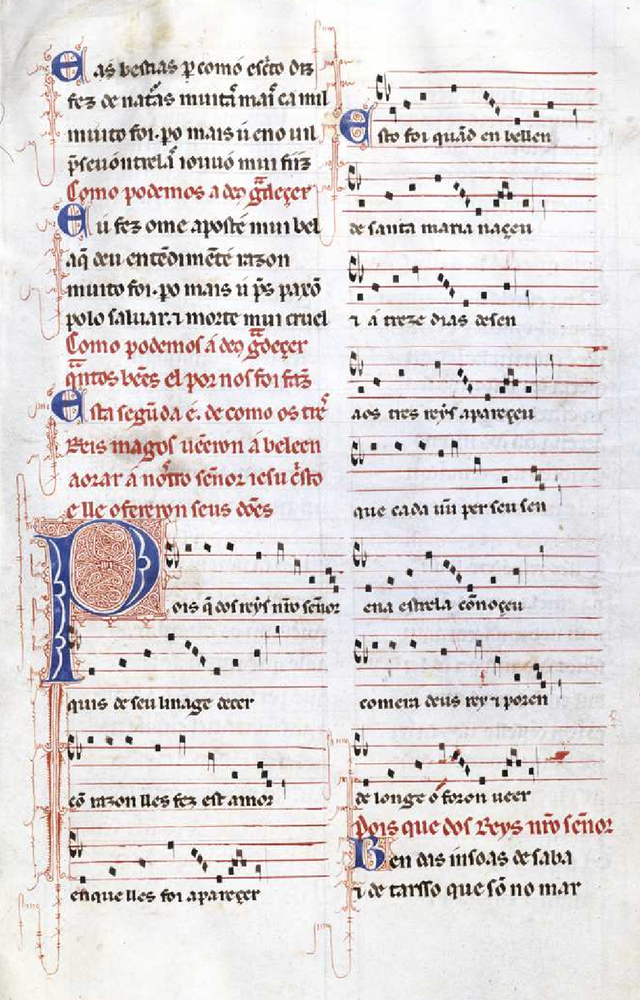 E as bestias p̄ como esc̄to diz
fez de nat̄as muit̄ mai ca mil
muito foi. po mais ú eno uil
p̄seu ontrelā iouuo mui fiiz
Como podemos a deus ḡdeçer
E ú fez ome aposte mui bel
aq̄ deu entēdimētē razon
muito foi. po mais ú pīs paxō
polo saluar. ⁊ morte mui cruel
Como podemos á deus ḡdeçer
q̄ntos bēes el por nos foi faz
Esta segūda é. de como os tre
Reis magos uēeron á beleen
aorar á nōtro señor iesu c̄sto
e lle ofereron seus dōes
Pois q̄ dos reys nr̄o señor
quis de seu linage decer
cō razon lles fez est amor
en que lles foi apareçer
Esto foi quād en belleen
de santa maria naçeu
⁊ á treze dias desen
aos tres reys apareçeu
que cada ūu per seu sen
ena estrela cōnoçeu
com era deus rey ⁊ poren
de longe ó foron ueer
Pois que dos Reys nr̄o señor
Ben das insoas de saba
⁊ de tarsso que sō no mar